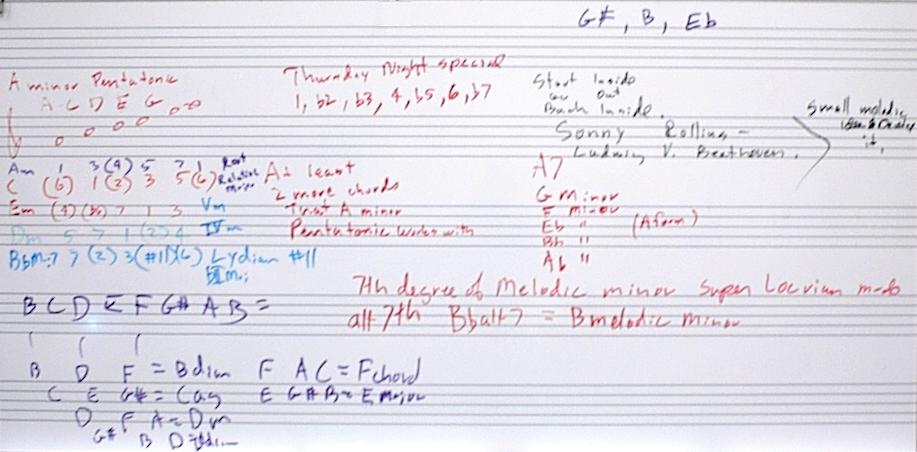 G#, B, Eb
A minor Pentatonic
A C D E G
Thursday Night special
1, b2, b3, 4, b5, 6, b7
Start Inside
Go Out
Back Inside.
Sonny Rollins -
Ludwig V. Beethoven.
Small melodic
it.
Am 1 3 (4) 5 7 1 Root
C (6) 1 (2) 3 5 (6) Relative Major
Em (4) 7 1 3 Vm
Dm 5 7 1 (2) 4 IVm
BbMi7 7 (2) 3 (#11) (6) Lydian #11
At least
2 more chords
that A minor
Pentatonic works with
A7
G Minor
F minor
Eb "
Bb "
Ab "
(A form)
7th degree of Melodic minor Super Locrian mode
alt 7th Bbalt7 = B melodic minor
B C D E F G# A B =
B D F = Bdim F A C = F chord
C E G# = Caug E G# B = E Major
D F A = Dm
G# B D = G#dim